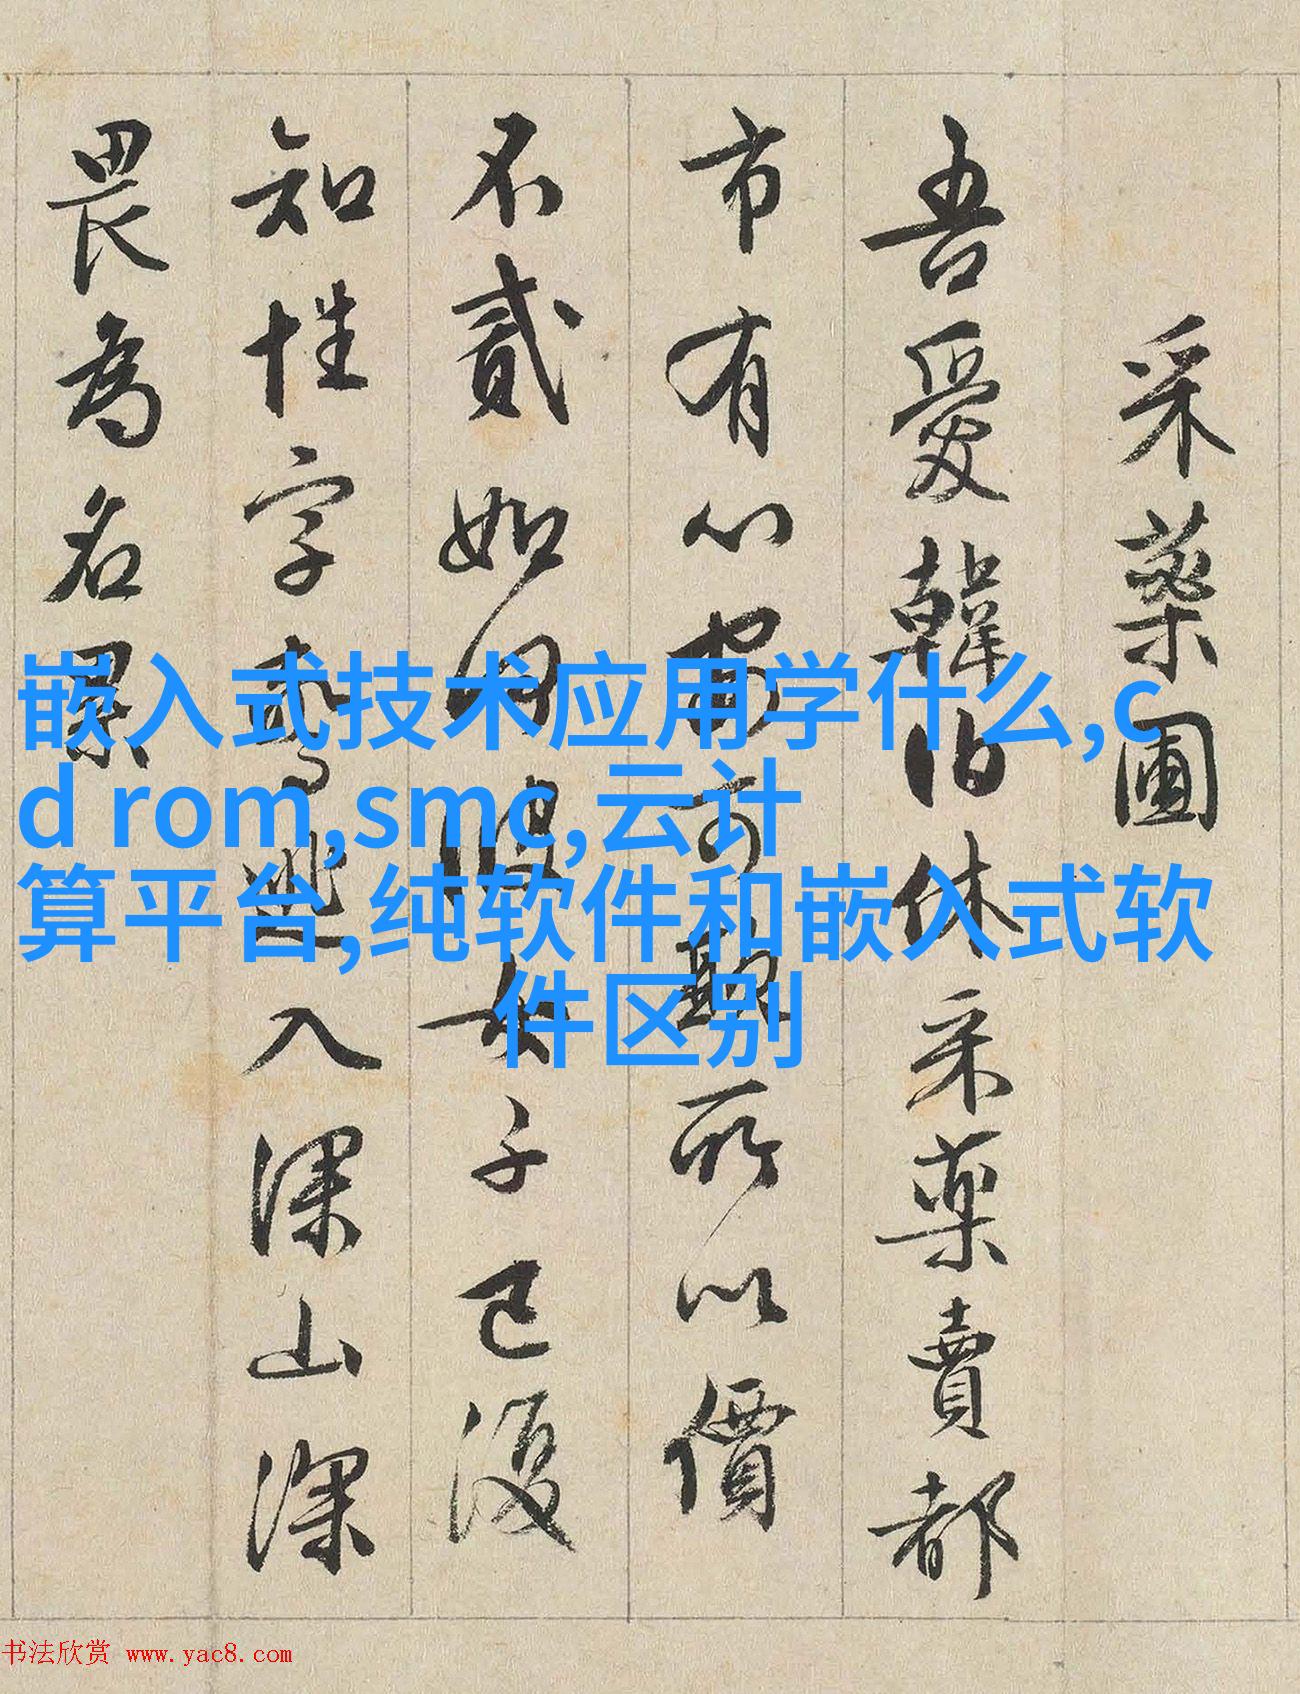 采藥圃
吾愛韓伯休采藥賣都
市有心安可欺所以價
不貳如何彼女子已復
知性字驚逃入深山深
畏為名累
嵌入式技术应用学什么,c
d rom,smc,云计
算平台,纯软件和嵌入式软
件区别
书法欣赏 www.yac8.com